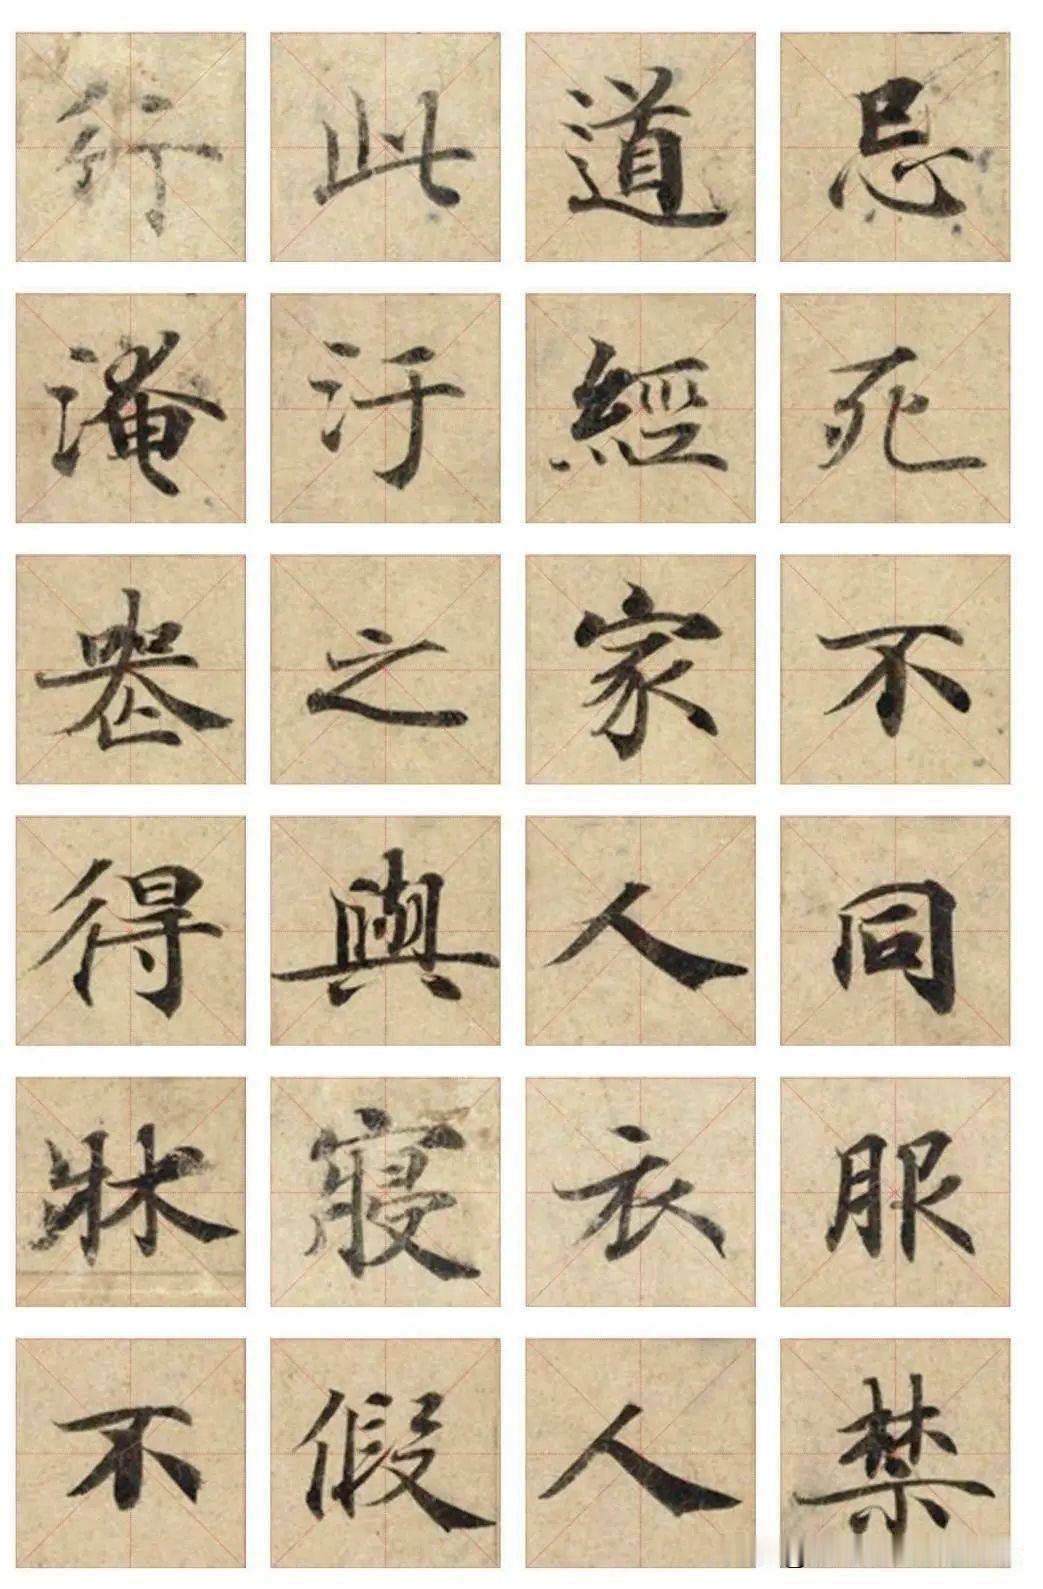 行此道忌
淹汙經死
喪之家不
得與人同
牀寢衣服
不假人禁